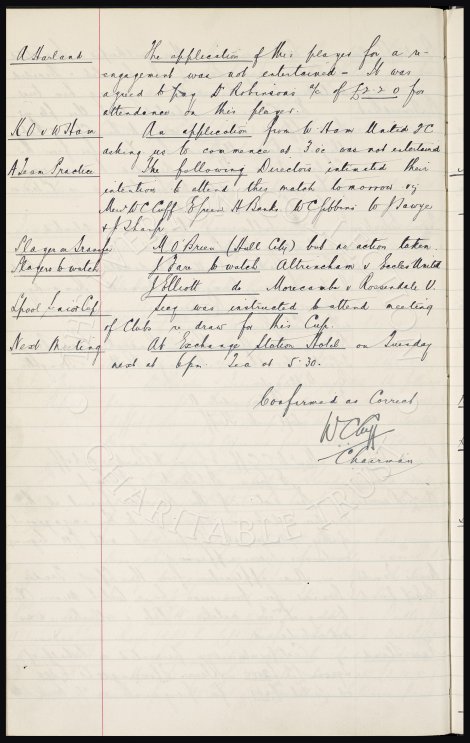 A Harland The application of this player for a re-
engagement was not entertained - It was
agreed to pay D Robinsons a/c of £2-2-0 for
attendance on this player.
K.O. v W Ham An application from W Ham United FC
asking us to commence at 3 oc was not entertained
A Team Practice The following Directors intimated their
intention to attend this match tomorrow
W C Cuff A Banks W C Gibbins J Sawyer
& J Sharp
M O Brien (Hull City) but no action taken.
Players to watch J Fare to watch Altrincham v Eccles United
J Elliott do Morecambe v Rossendale U.
L'pool Cup Secy was instructed to attend meeting
of Clubs re draw for this Cup.
Next Meeting At Exchange Station Hotel on Tuesday
next at 6pm. Tea at 5.30.
Confirmed as Correct
W C Cuff
Chairman
CHARITABLE TRUST